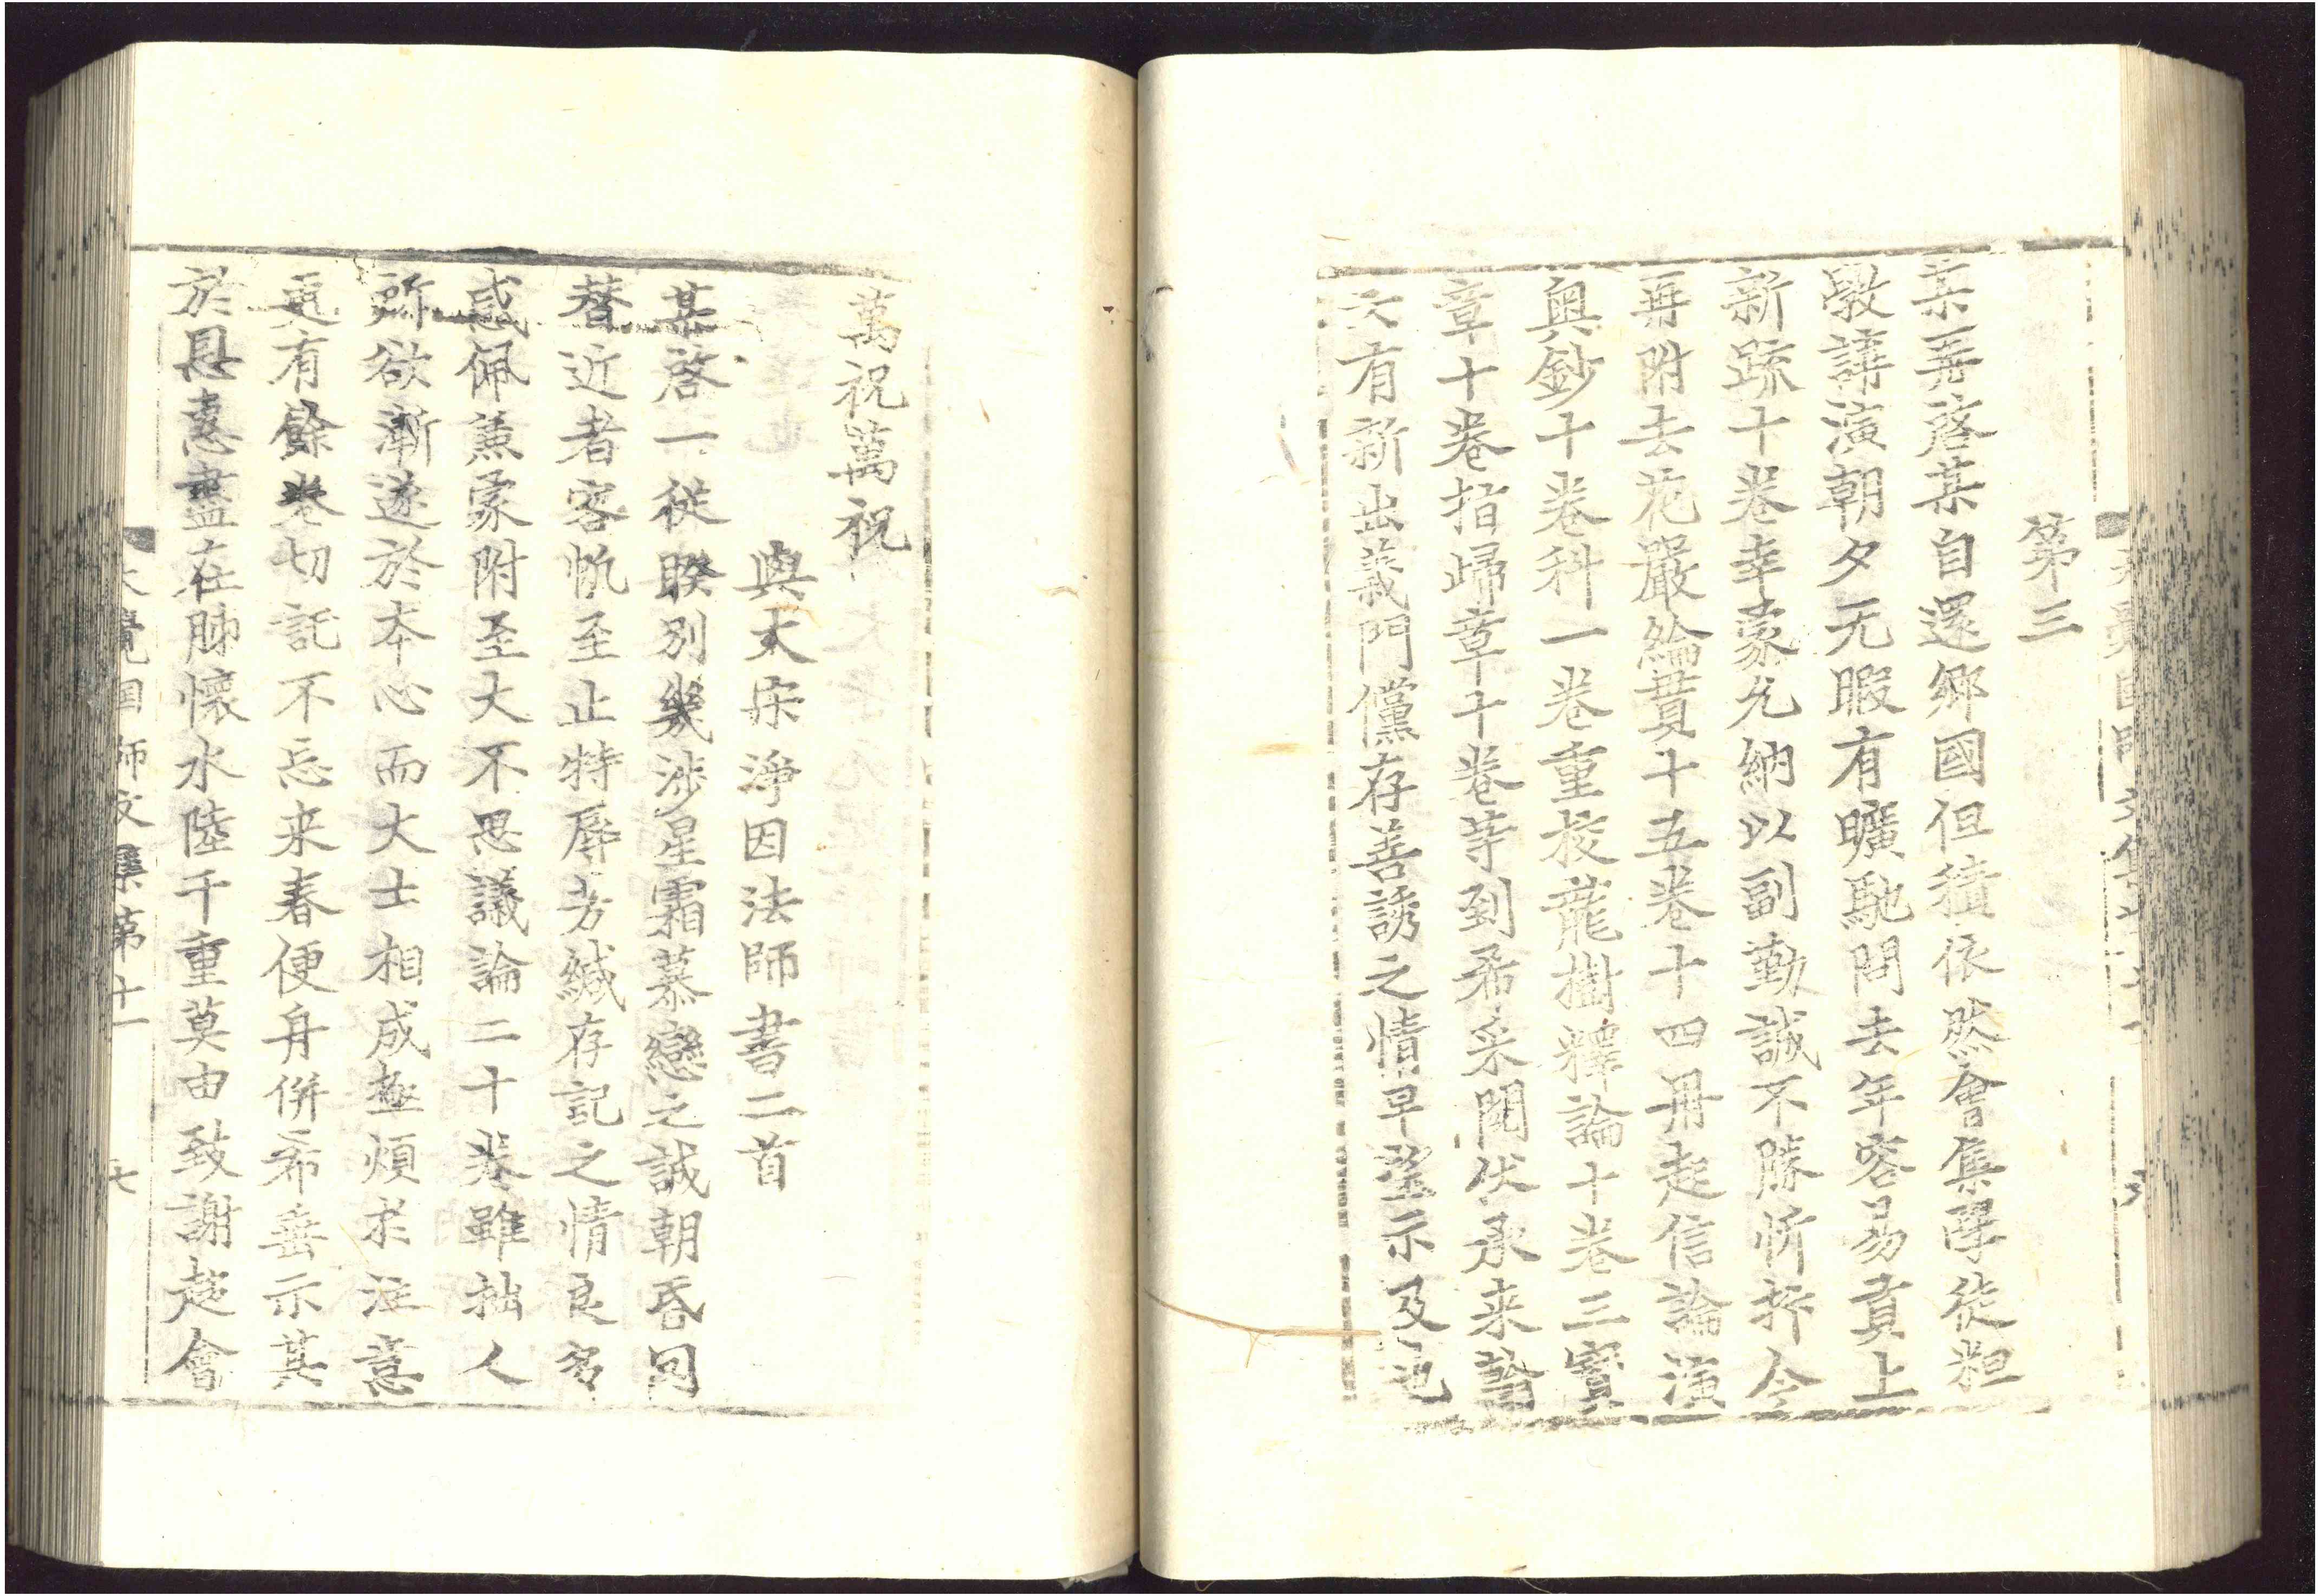 第三
某再啓某自還鄕國但積依然會集學徒粗
敦講演朝夕无暇有曠馳問去年容易貢上
新䟽十卷幸蒙允納以副勤誠不勝忻抃今
再附去花嚴綸貫十五卷十四冊起信論演
奧鈔十卷科一卷重挍龍樹釋論十卷三寶
章十卷指歸章十卷等到希采閱伏承来
有新出義門儻存善誘之情早望示及也
萬祝萬祝
與大宋淨因法師書二首
某啓一從睽別幾涉星霜慕戀之誠朝昏罔
替近者客帆至止特辱芳緘存記之情良多
感佩兼蒙附至大不思議論二十卷雖拙人
所欲漸遂於本心而大士相成極煩於注意
更有餘卷切託不忘来春便舟併希垂示其
於悬悬盡在肺懷水陸千重莫由致謝趍會
大覺國師文集第十一 七